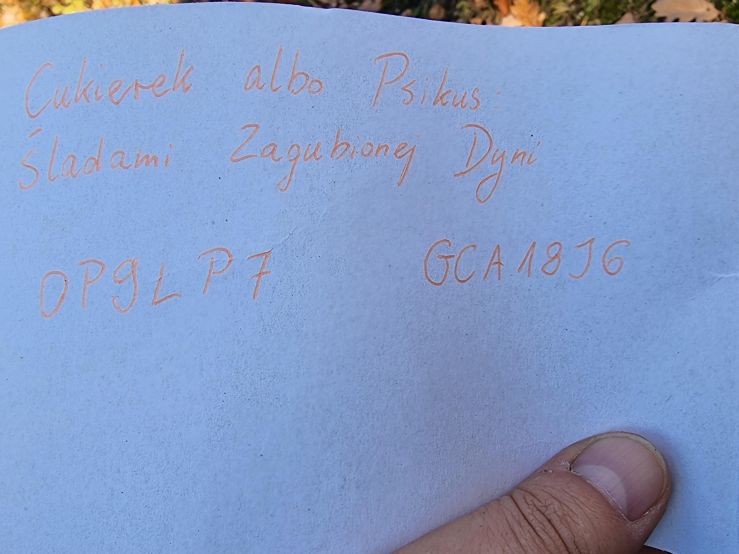 Cukierek albo Psikus:
Śladami Zagubionej Dyni
OP9LP7 GCA18J6